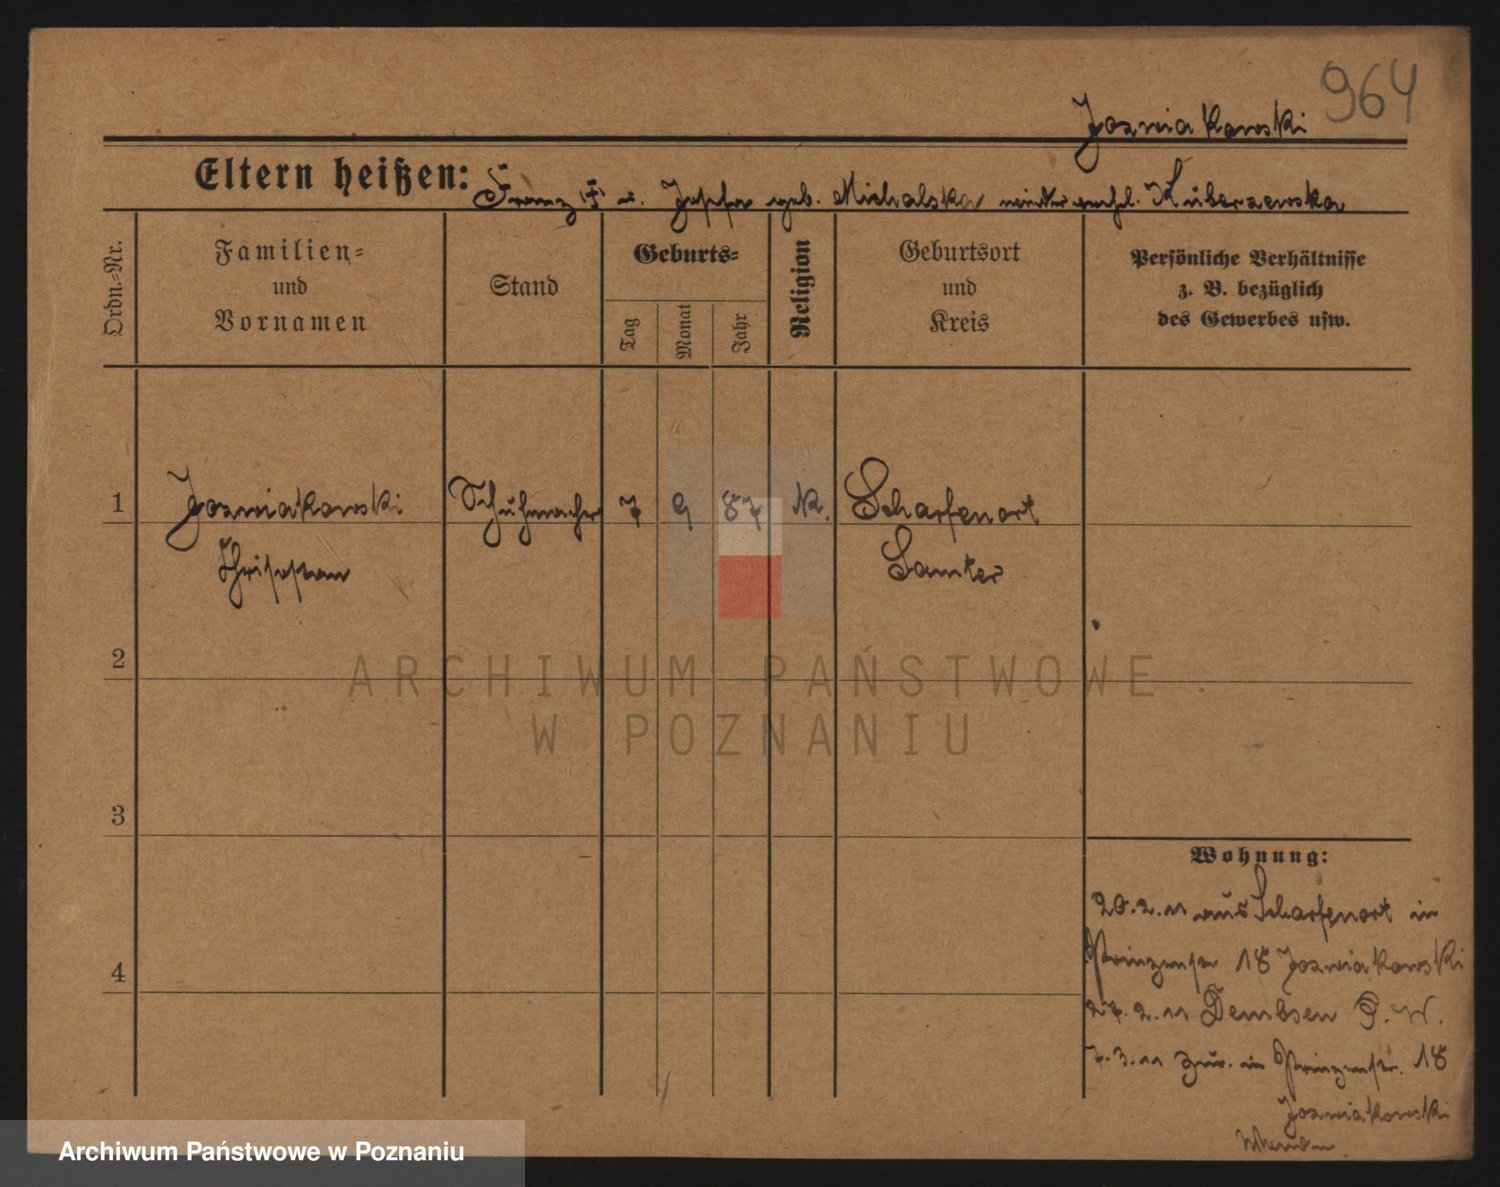 964
Jozwiakowski
Eltern heißen: Franz (†) u. Josepha geb. Michalska wieder verehl. Kuberzewska
Ordn.-Nr.
Familien-
und
Vornamen
Stand
Geburts-
Tag
Monat
Jahr
Religion
Geburtsort
und
Kreis
Persönliche Verhältnisse
z. B. bezüglich
des Gewerbes usw.
1 Jozwiakowski Schuhmacher 7 9 87 K. Scharfenort
Samter
2
ARCHIWUM PAŃSTWOWE
W POZNANIU
3
4
Wohnung:
20.2.11 aus Scharfenort in
Prinzenstr 18 Jozwiakowski
27.2.11 Dembsen P. W.
7.3.11 zur. in Prinzenstr. 18
Jozwiakowski
Archiwum Państwowe w Poznaniu